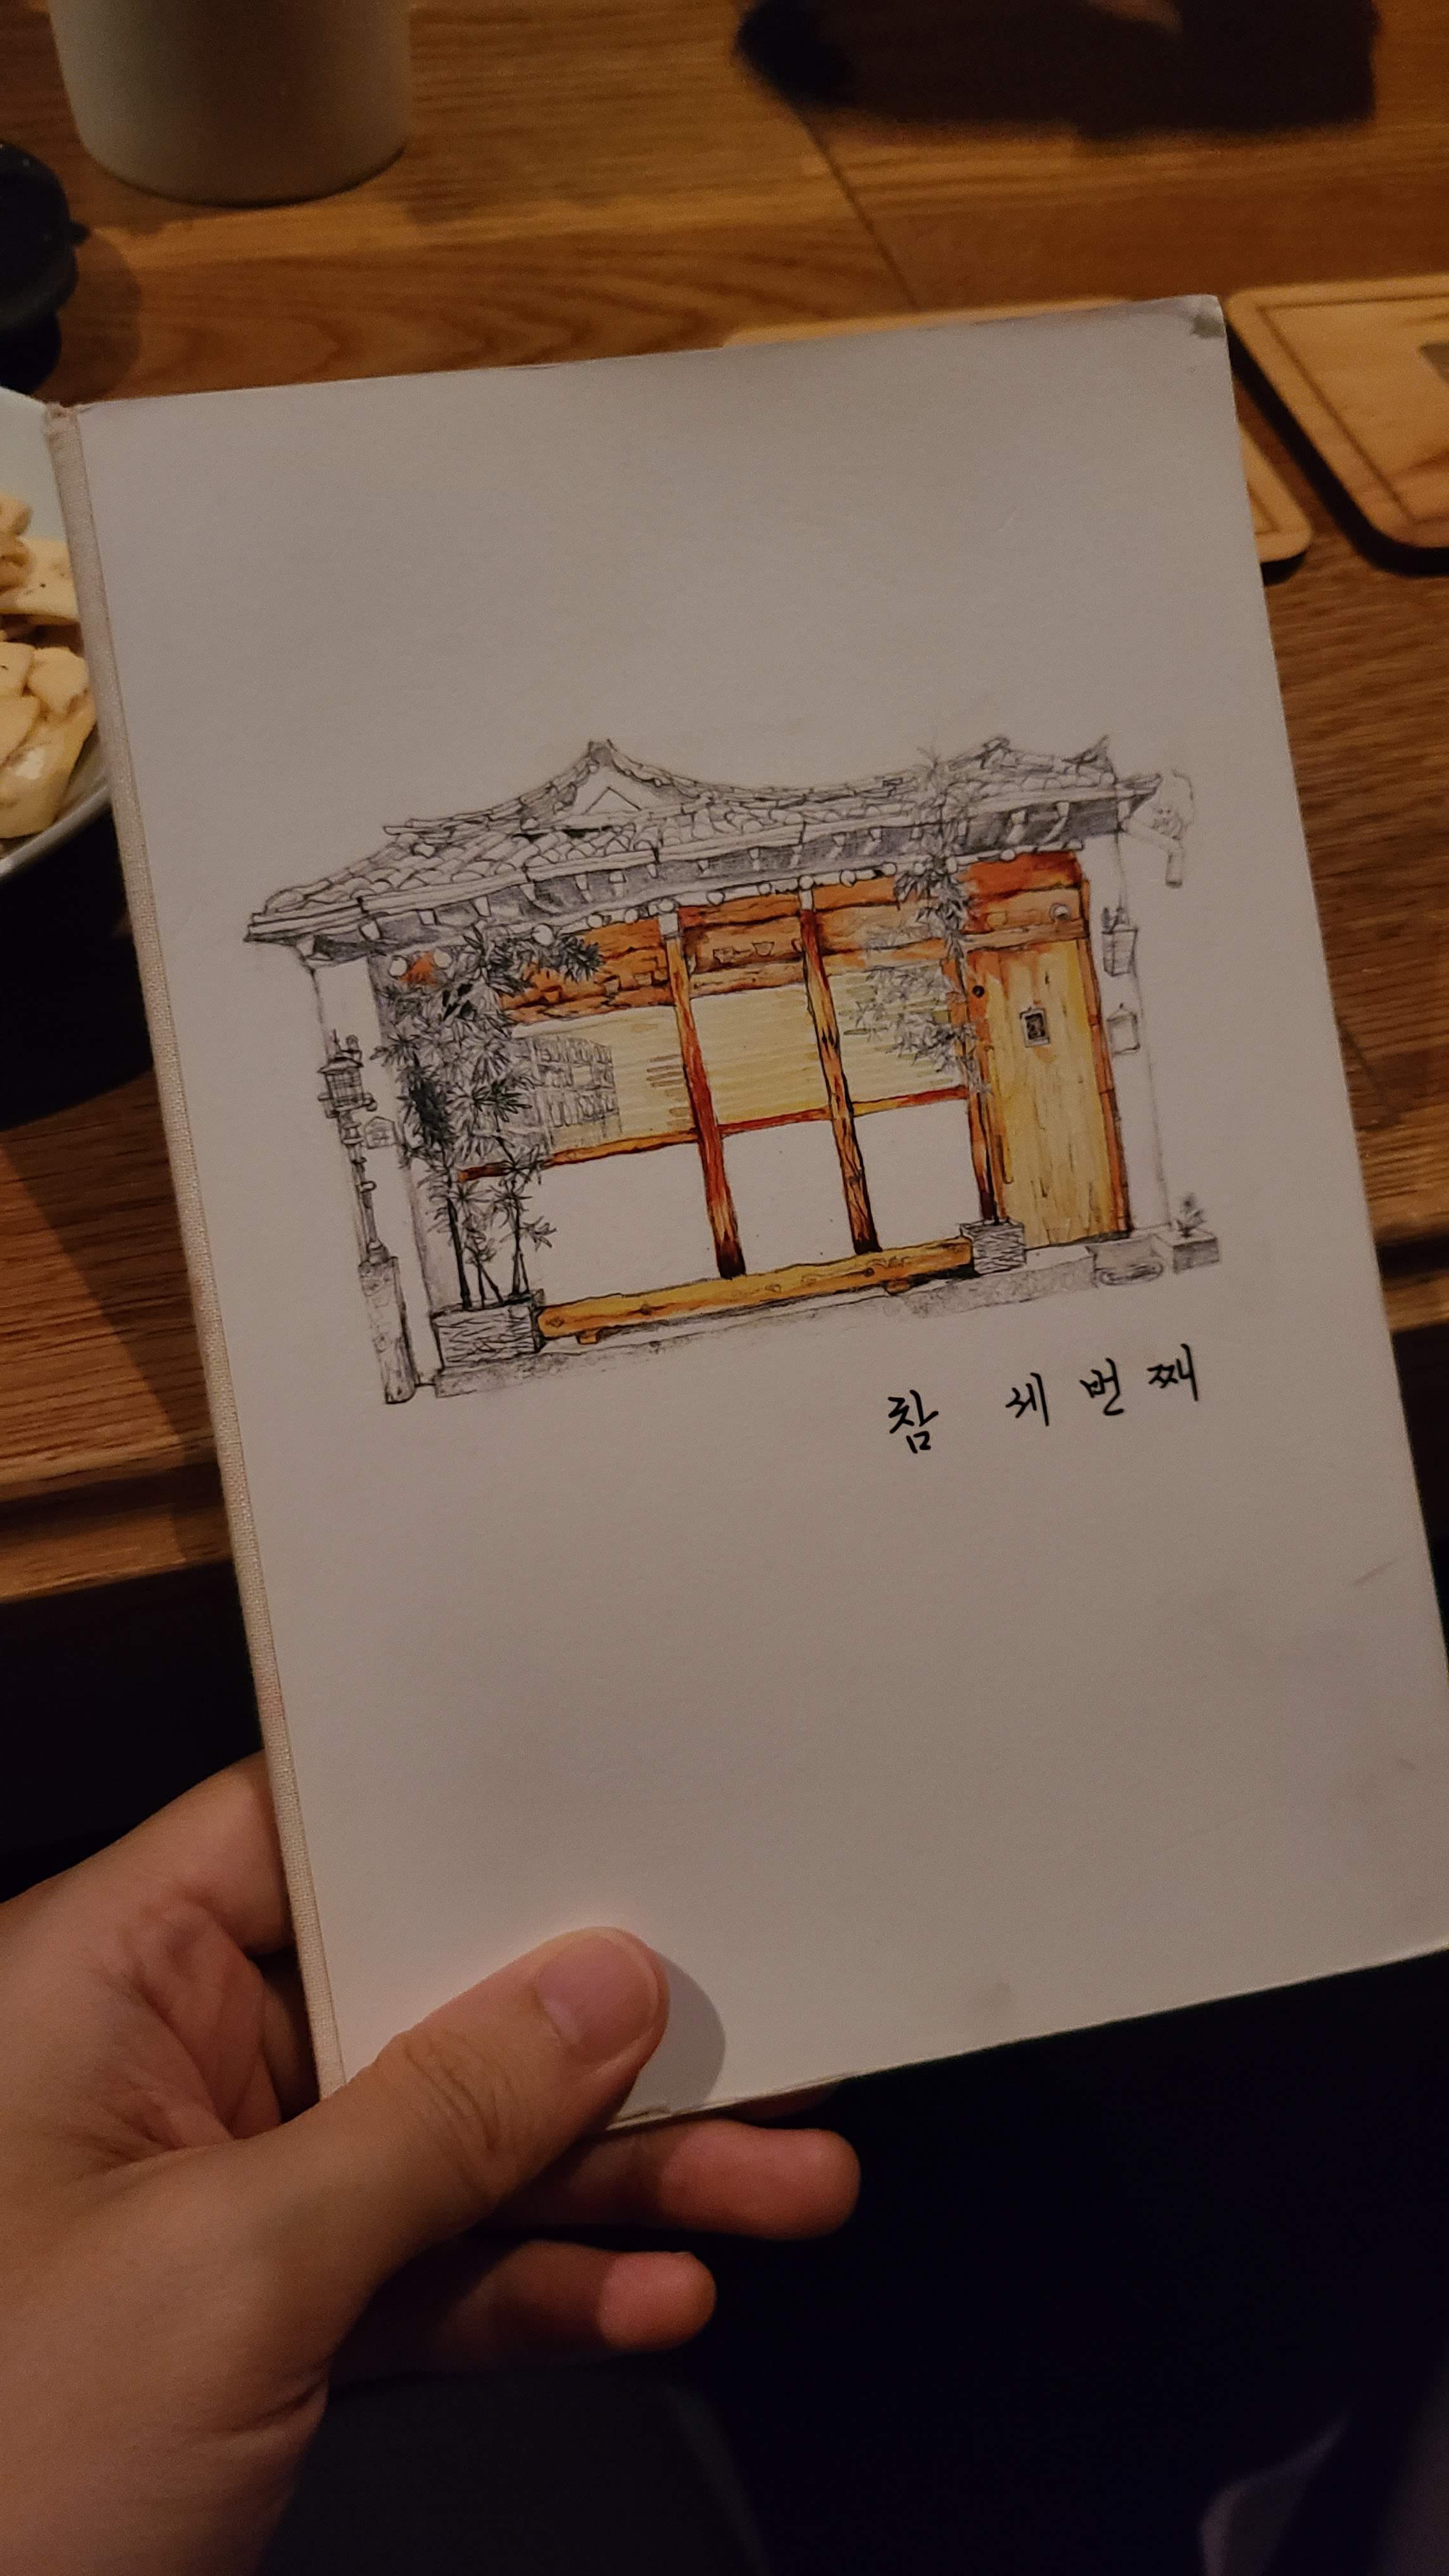 참 세번째